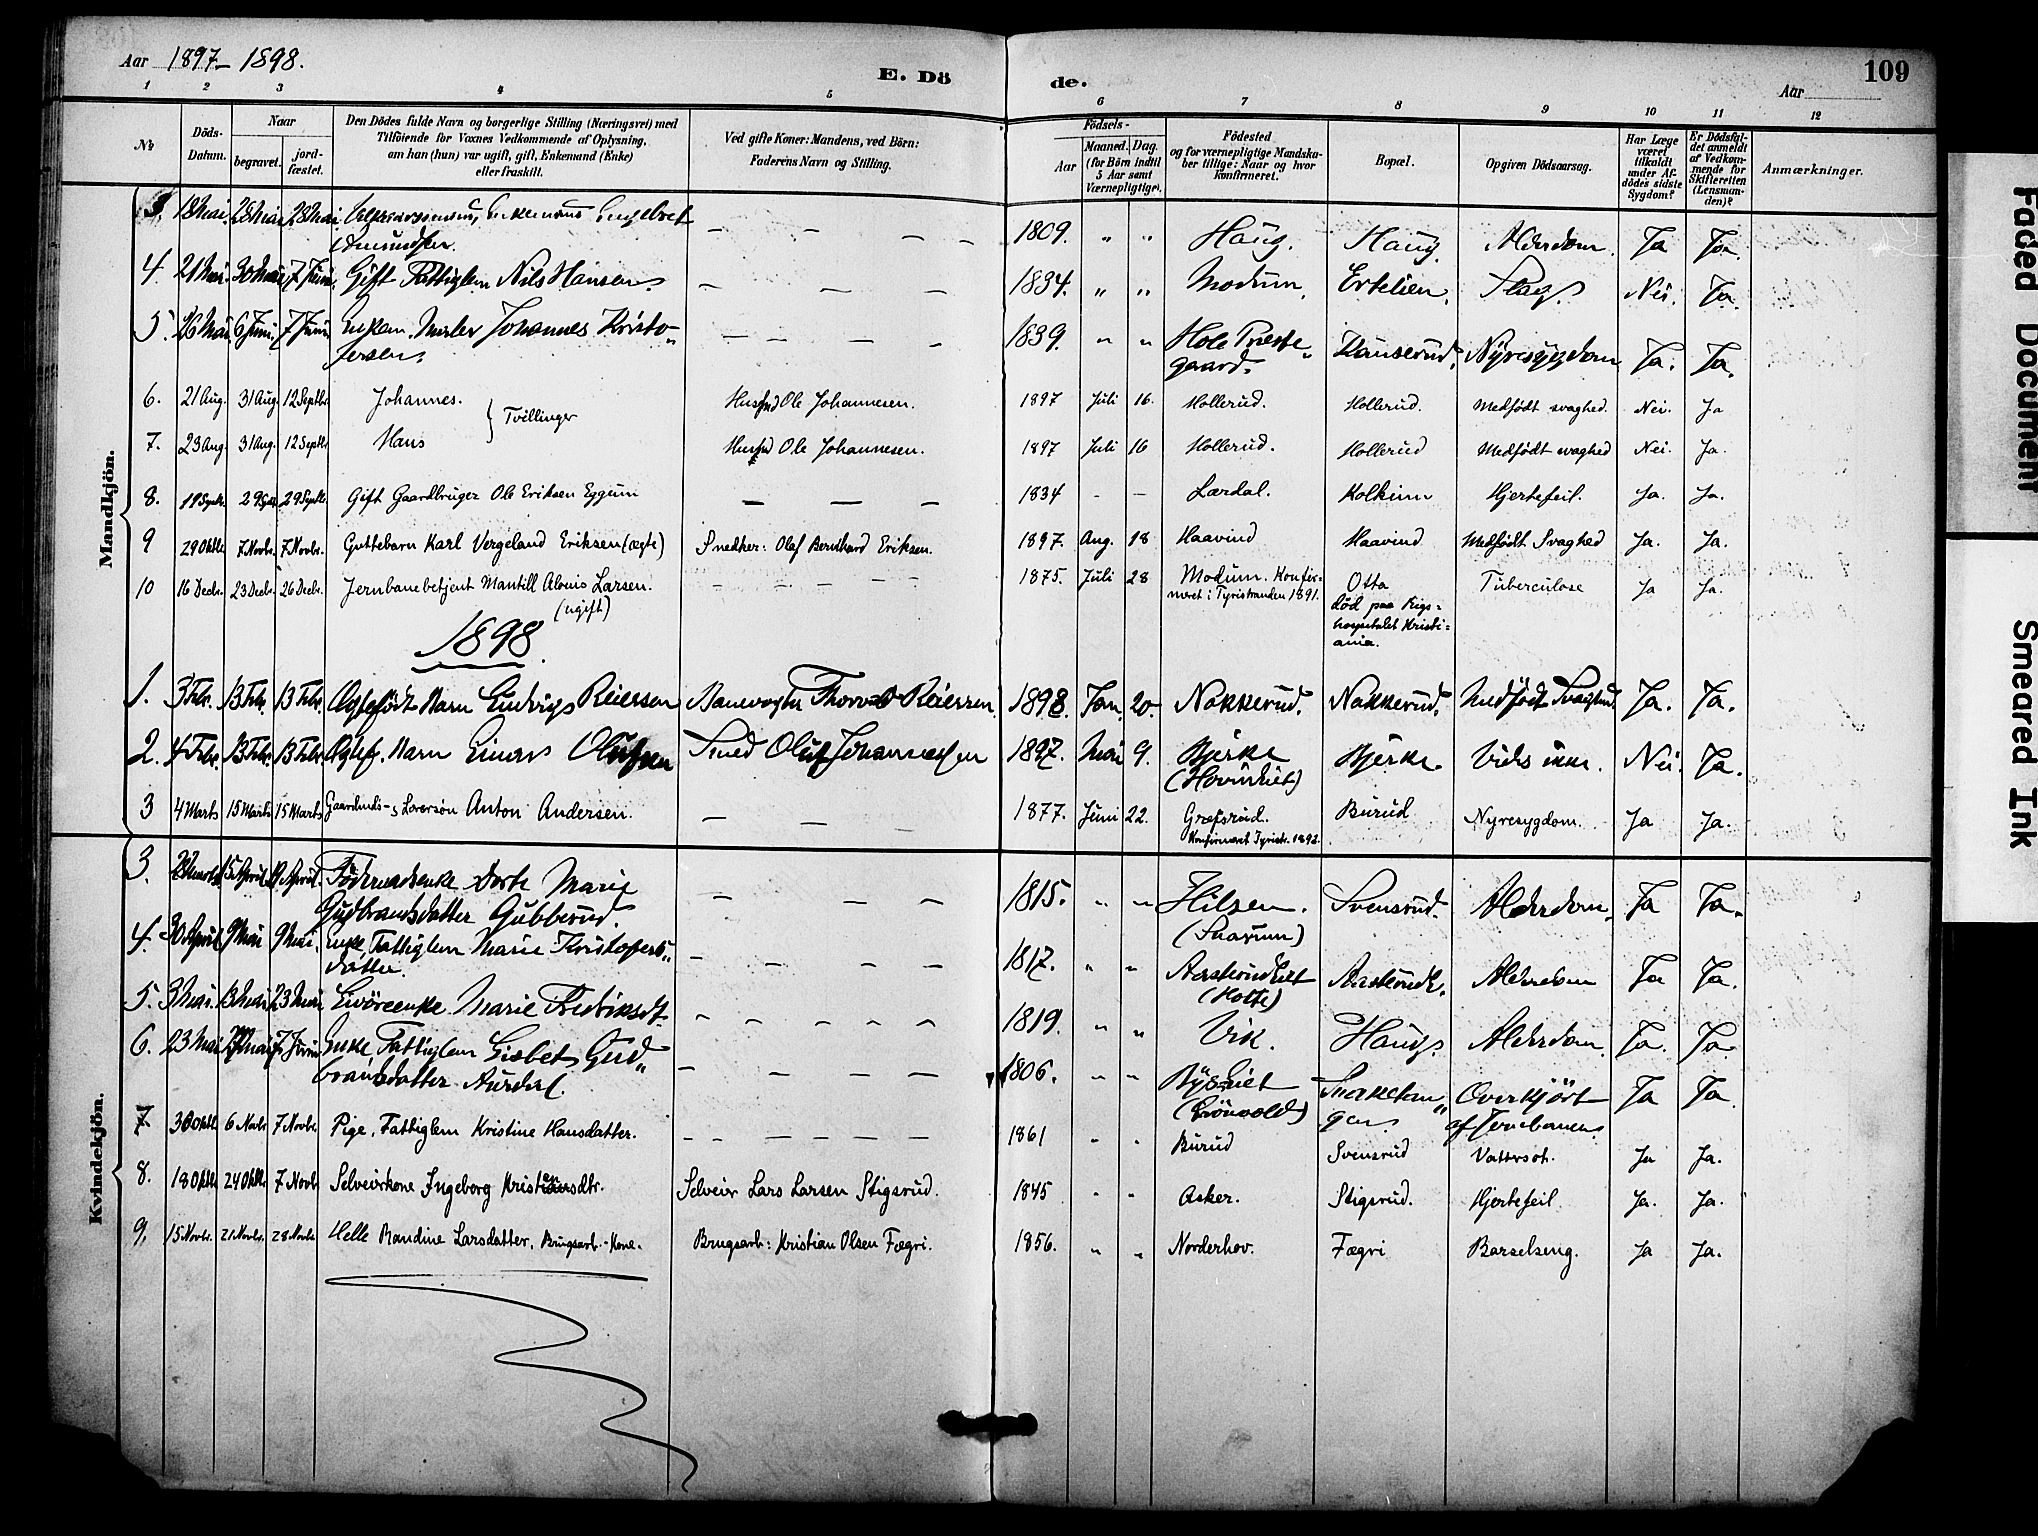 Aar 1897-1898.
E. Dö
de.
109
Aar
1 2 3 4 5 6 7 8 9 10 11 12
No
Döds-Datum.
Naar
begravet.
jord-fæstet.
Den Dödes fulde Navn og borgerlige Stilling (Næringsvei) med
Tilföiende for Voxnes Vedkommende af Oplysning,
om han (hun) var ugift, gift, Enkemand (Enke)
eller fraskilt.
Ved gifte Koner: Mandens, ved Börn:
Faderens Navn og Stilling.
Födsels-
Aar
Maaned. Dag.
(for Börn indtil
5 Aar samt
Værnepligtige).
Födested
og for værnepligtige Mandska-
ber tillige: Naar og hvor
konfirmeret.
Bopæl.
Opgiven Dödsaarsag.
Har Læge
været
tilkaldt
under Af-
dödes sidste
Sygdom?
Er Dödsfal-
det anmeldt
af Vedkom-
mende for
Skifteretten
(Lensman-
den)?
Anmærkninger.
Mandkjön.
3. 18 Mai. 28 Mai 28 Mai. Enkemand Engebret
Amundsen — — — — 1809. " " Haug. Haug. Alderdom. Ja Ja.
4. 21 Mai. 30 Mai 7 Juni. Gift Fattiglem Nils Hansen. — — — — 1834. " " Modum. Ertelien. Slag. Nei. Ja.
5. 26 Mai 6 Juni. 7 Juni. Enkem. Maler Johannes Kristo-
fersen. — — — — 1839. " " Hole Præste-
gaard. Nyresygdom Ja. Ja.
6. 21 Aug. 31 Aug. 12 Septbr. Johannes. } Tvillinger Husmd Ole Johannesen. 1897 Juli 16. Hollerud. Hollerud. Medfödt svaghed. Nei. Ja
7. 23 Aug. 31 Aug. 12 Septbr. Hans Husmd Ole Johannesen. 1897 Juli 16 Hollerud. Hollerud Medfödt svaghed Nei. Ja.
8. 19 Septbr. 29 Septbr. 29 Septbr. Gift Gaardbruger Ole Eriksen Eggum — — — 1834 - - Lærdal. Kolkinn Hjertefeil. Ja. Ja.
9 29 Oktbr. 7 Novbr. 7 Novbr. Guttebarn Karl Vergeland Eriksen (ægte) Snedker: Olaf Bernhard Eriksen. 1897. Aug. 18 Haavind Haavind Medfödt Svaghed Ja. Ja.
10 16 Decbr. 23 Decbr. 26 Decbr. Jernbanebetjent Mantill Alonis Larsen.
(ugift) — — — — 1875. Juli 28 Modum. Konfir-
meret i Tyristranden 1891. Otta
död paa Rigs-
hospitalet Kristi-
ania. Tuberculose Ja Ja.
1898.
1. 3 Febr. 13 Febr. 13 Febr. Ægtefödt Barn Ludvig Reiersen Banevogter Thorvald Reiersen. 1898. Jan. 20. Nakkerud. Nakkerud. Medfödt Svaghed. Ja. Ja.
2. 4 Febr. 13 Febr. 13 Febr. Ægtef. Barn Einar Olufsen Smed Oluf Johannesen 1897. Mai 9. Bjerke
(Hovinhiet) Bjerke. Vides ikke. Nei. Ja.
3 4 Marts 15 Marts 15 Marts Gaardmds- Anton Andersen. — — — 1877. Juni 22. Græsrud.
Konfirmeret Tyristr. 1892. Burud Nyresygdom. Ja Ja.
Kvindekjön.
3. 15 April. April. Föderaadsenke Dorte Marie
Gudbrandsdatter Gubberud. — — — 1815. " " Hilsen.
(Snarum) Svensrud. Alderdom. Ja Ja.
4. 30 April 9 Mai 9 Mai. Enke, Fattiglem Marie Kristofers-
datter. — — — — 1817. " " (Holte) Alderdom Ja Ja.
5. 3 Mai. 13 Mai 23 Mai Livöreenke Marie Fredriksdt. — — — — — 1819. " " Vik. Haug. Alderdom. Ja. Ja
6. 23 Mai 7 Juni Enke, Fattiglem Lisbet Gud-
brandsdatter Aurdal. — — — — 1806. " " Overkjört
af Jernbanen. Ja Ja.
7. 30 Oktbr. 6 Novbr. 7 Novbr. Pige, Fattiglem Kristine Hansdatter. — — — — — — 1861 " " Burud Svensrud Vattersot. Ja Ja.
8. 18 Oktbr. 24 Oktbr. 7 Novbr Selveierkone Ingeborg Kristiansdtr. Selveier Lars Larsen Stigsrud. 1845 " " Asker. Stigsrud. Hjertefeil. Ja. Ja.
9. 15 Novbr. 21 Novbr. 28 Novbr. Helle Randine Larsdatter, Brugsarb.-Kone. Brugsarb: Kristian Olsen Fægri. 1856. " " Norderhov. Fægri Barselseng. Ja Ja.
Faded Document
Smeared Ink